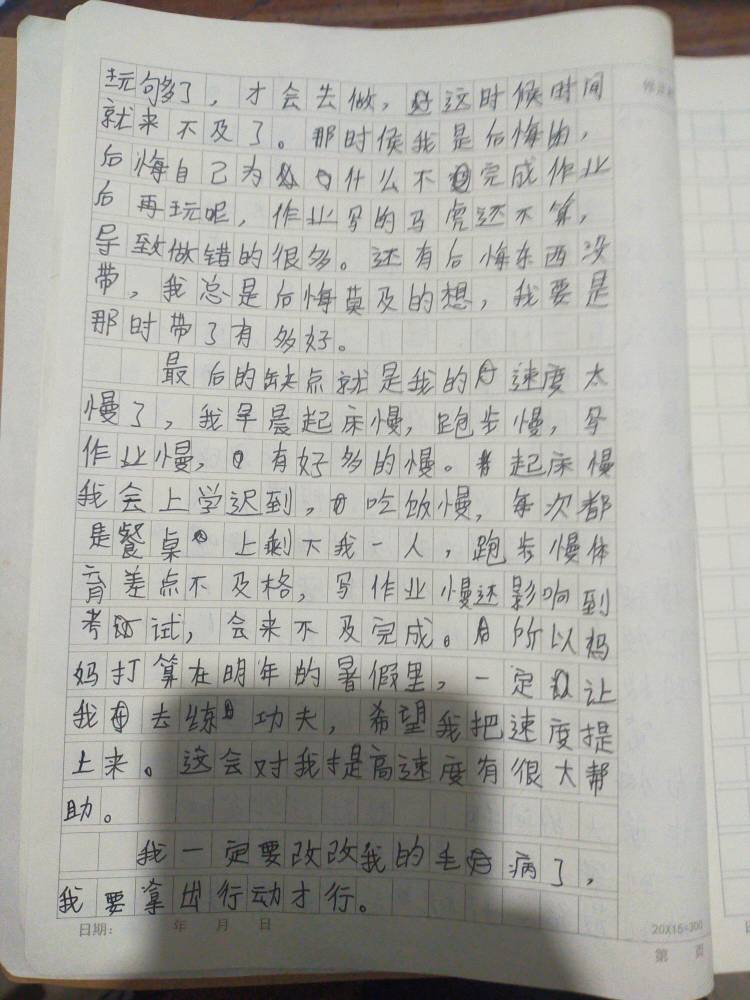 玩够了，才会去做，这时候时间
就来不及了。那时侯我是后悔的，
后悔自己为什么不完成作业
后再玩呢，作业写的马虎还不算，
导致做错的很多。还有后悔东西没
带，我总是后悔莫及的想，我要是
那时带了有多好。
最后的缺点就是我的速度太
慢了，我早晨起床慢，跑步慢，写
作业慢，有好多的慢。起床慢
我会上学迟到，吃饭慢，每次都
是餐桌上剩下我一人，跑步慢体
育差点不及格，写作业慢还影响到
考试，会来不及完成。所以妈
妈打算在明年的暑假里，一定让
我去练功夫，希望我把速度提
上来。这会对我提高速度有很大帮
助。
我一定要改改我的毛病了，
我要拿出行动才行。
日期： 年 月 日
20X15=300
第 页